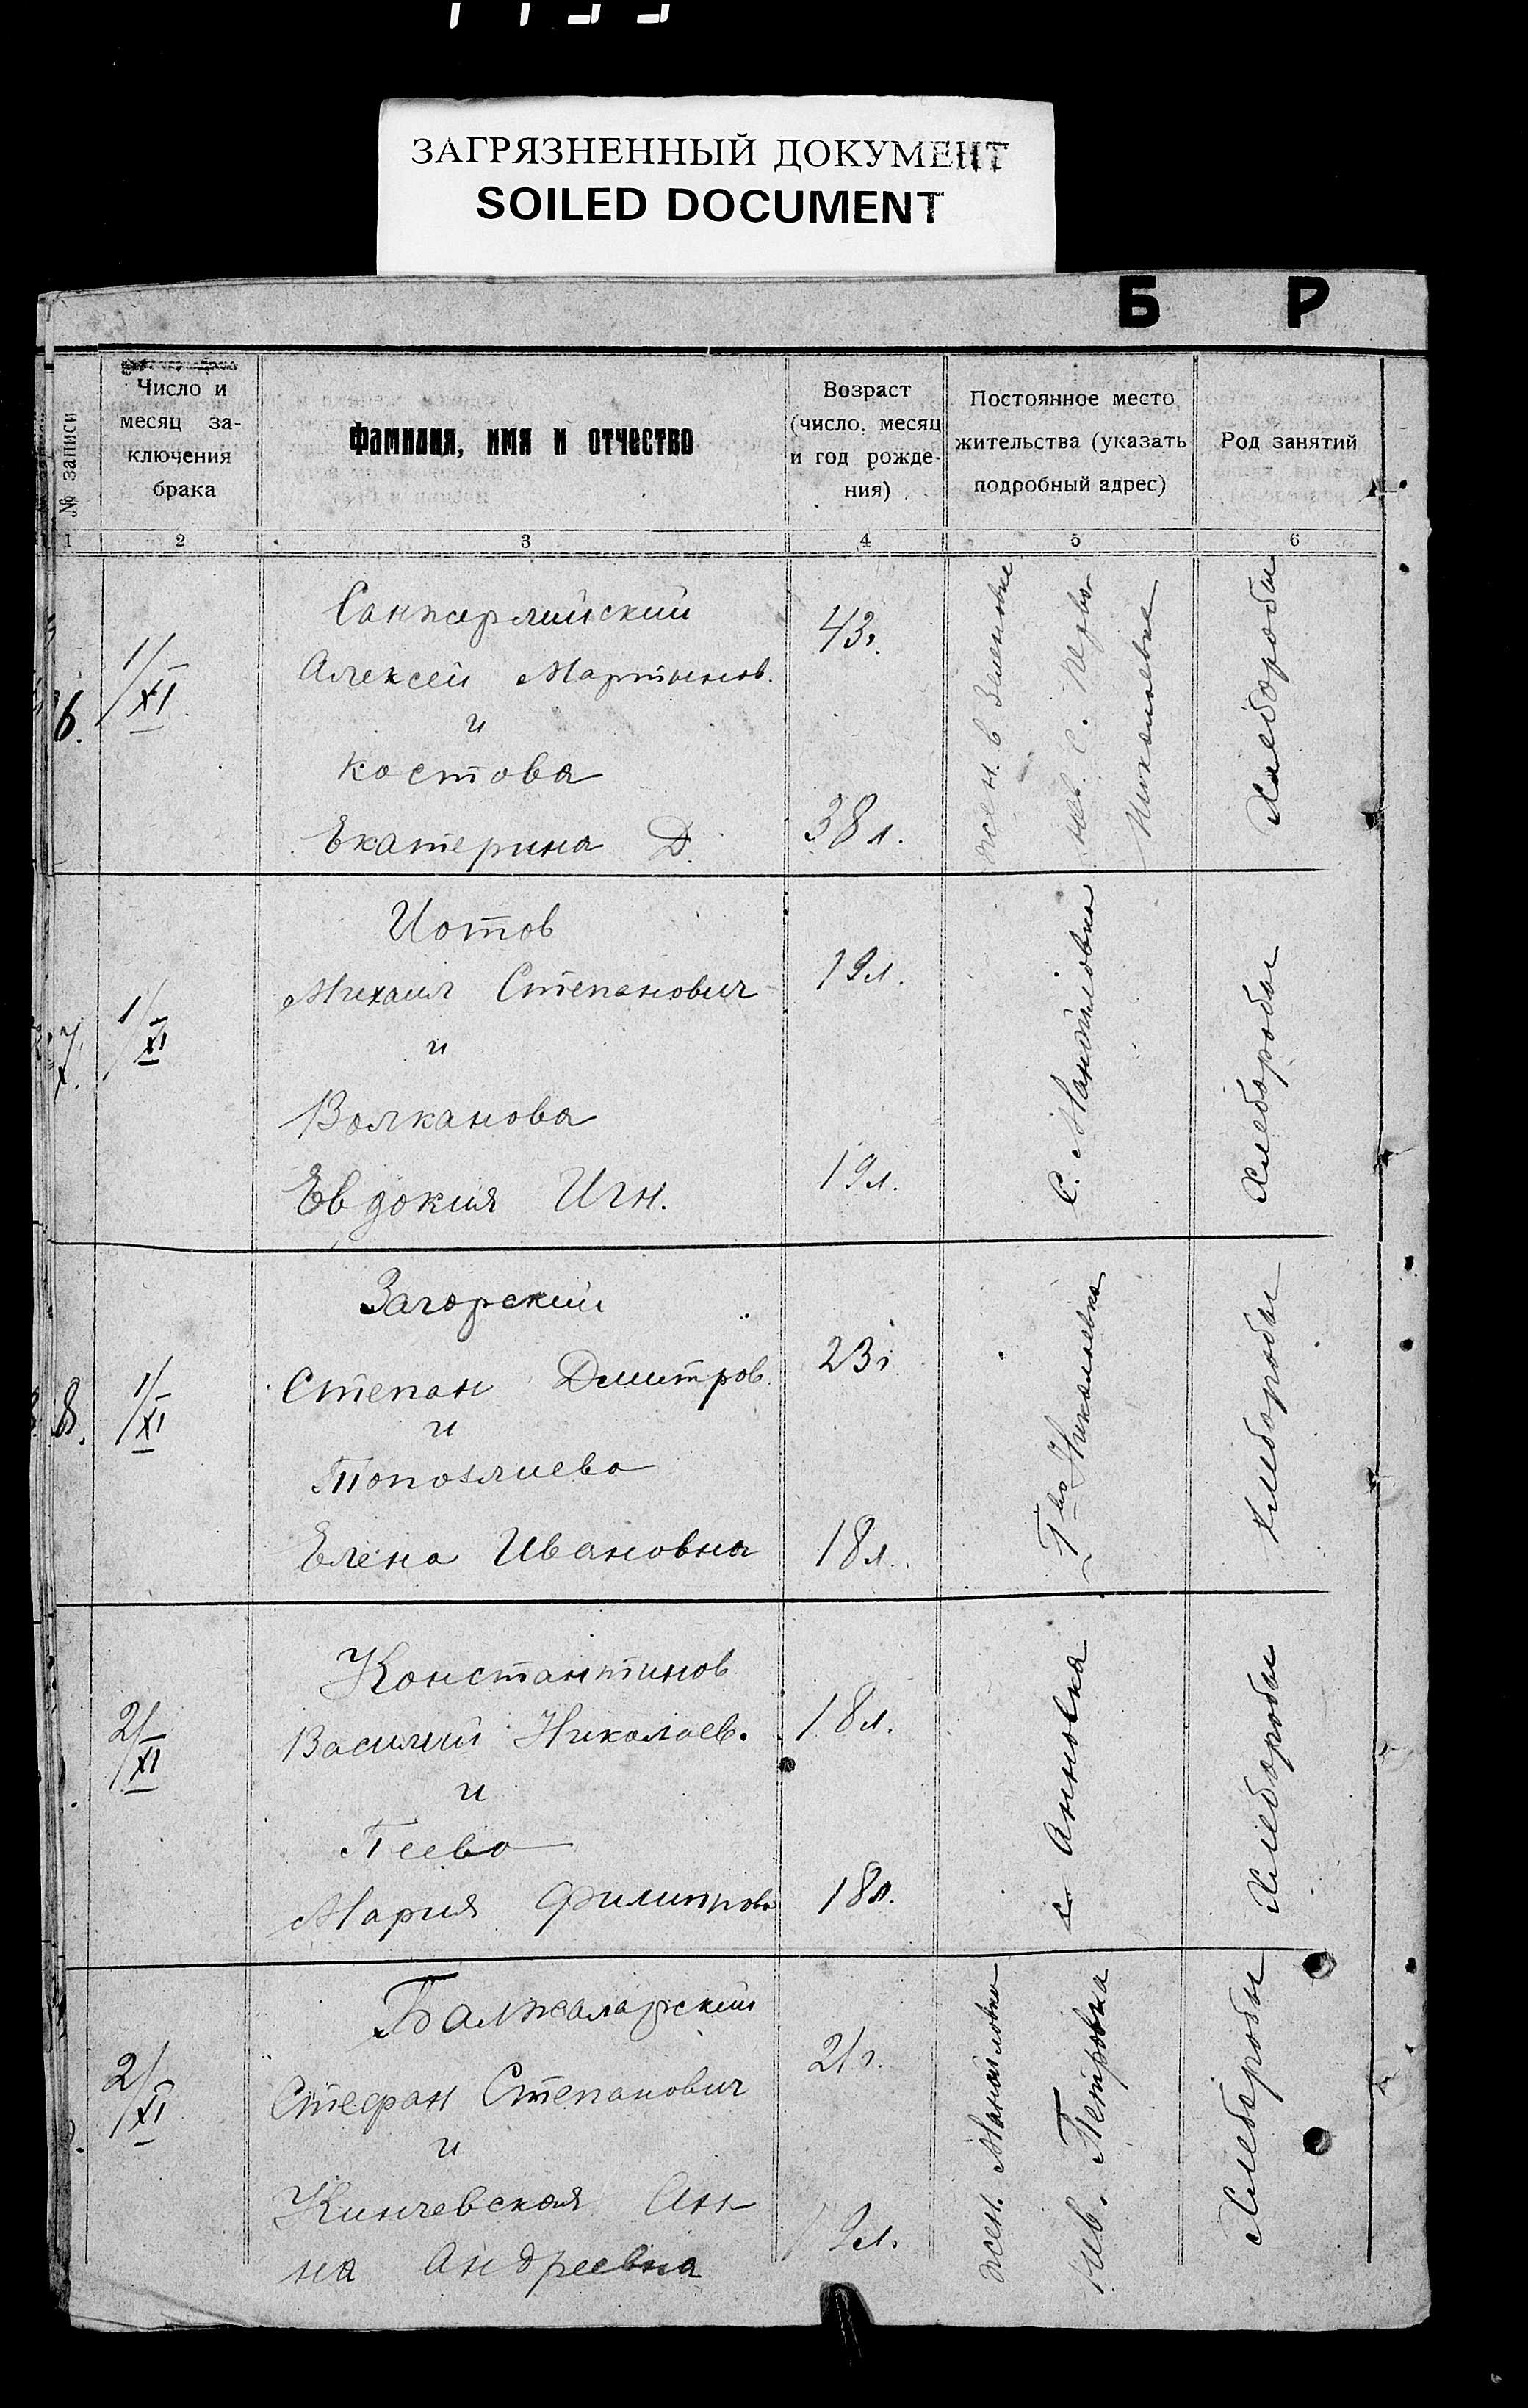 ЗАГРЯЗНЕННЫЙ ДОКУМЕНТ
SOILED DOCUMENT
Б Р
№ записи
Число и
месяц за-
ключения
брака
Фамилия, имя и отчество
Возраст
(число, месяц
и год рожде-
ния)
Постоянное место
жительства (указать
подробный адрес)
Род занятий
1 2 3 4 5 6
6.
1/XI
Санжарлийский
Алексей Мартынов.
и
Костова
Екатерина Д.
43г.
38 л.
жен. в Зеленовке
нев. с. Перво
Николаевка
Хлеборобы
7.
1/XI
Иотов
Михаил Степанович
и
Волканова
Евдокия Игн.
19л.
19л.
С. Манойловка
Хлеборобы
8.
1/XI
Загорский
Степан Дмитров.
и
Топозлиева
Елена Ивановна
23г
18л.
Николаевка
Хлеборобы
2/XI
Константинов
Василий Николаев.
и
Геева
Мария
18л.
18л.
с. Анновка
Хлеборобы
2/XI
Балжаларский
Стефан Степанович
и
Кинчевская Ан-
на Андреевна
21г.
19л.
жен. Манойловка
нев. Петровка
Хлеборобы